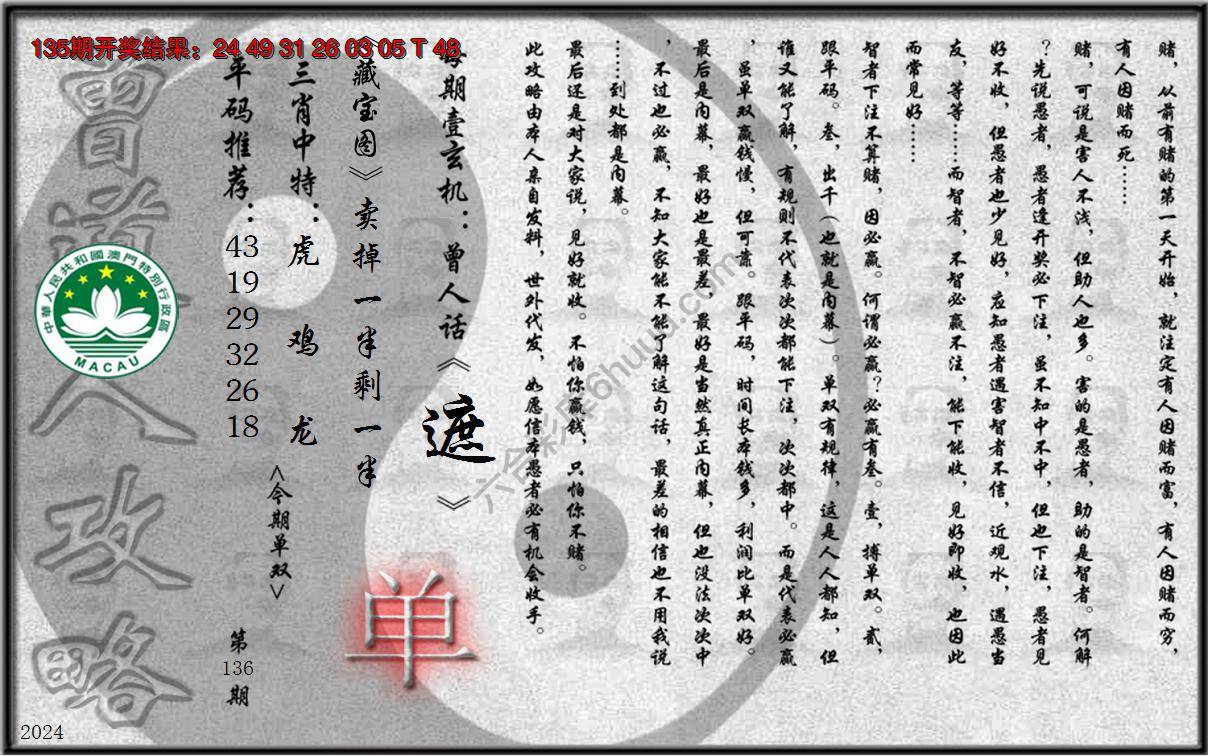 135期开奖结果：24 49 31 26 03 05 T 48
赌，从前有赌的第一天开始，就注定有人因赌而富，有人因赌而穷，
有人因赌而死……
赌，可说是害人不浅，但助人也多。害的是愚者，助的是智者。何解
？先说愚者，愚者逢开奖必下注，虽不知中不中，但也下注，愚者见
好不收，但愚者也少见好，应知愚者遇害智者不信，近观水，遇愚当
友，等等……而智者，不智必赢不注，能下能收，见好即收，也因此
而常见好……
智者下注不算赌，因必赢。何谓必赢？必赢有叁。壹，搏单双。贰，
跟平码。叁，出千（也就是内幕）。单双有规律，这是人人都知，但
谁又能了解，有规则不代表次次都能下注，次次都中。而是代表必赢
，虽单双赢钱慢，但可靠。跟平码，时间长本钱多，利润比单双好。
最后是内幕，最好也是最差，最好是当然真正内幕，但也没法次次中
，不过也必赢，不知大家能不能了解这句话，最差的相信也不用我说
……到处都是内幕。
最后还是对大家说，见好就收。不怕你赢钱，只怕你不赌。
此攻略由本人亲自发料，世外代发，如愿信本愚者必有机会收手。
每期壹玄机：曾人话《遮》
《藏宝图》卖掉一半剩一半
单
三肖中特：虎 鸡 龙
<今期单双>
平码推荐：
43
19
29
32
26
18
第
136
期
曾道人攻略
中華人民共和國澳門特別行政區
MACAU
2024
六合彩库6huuu.com